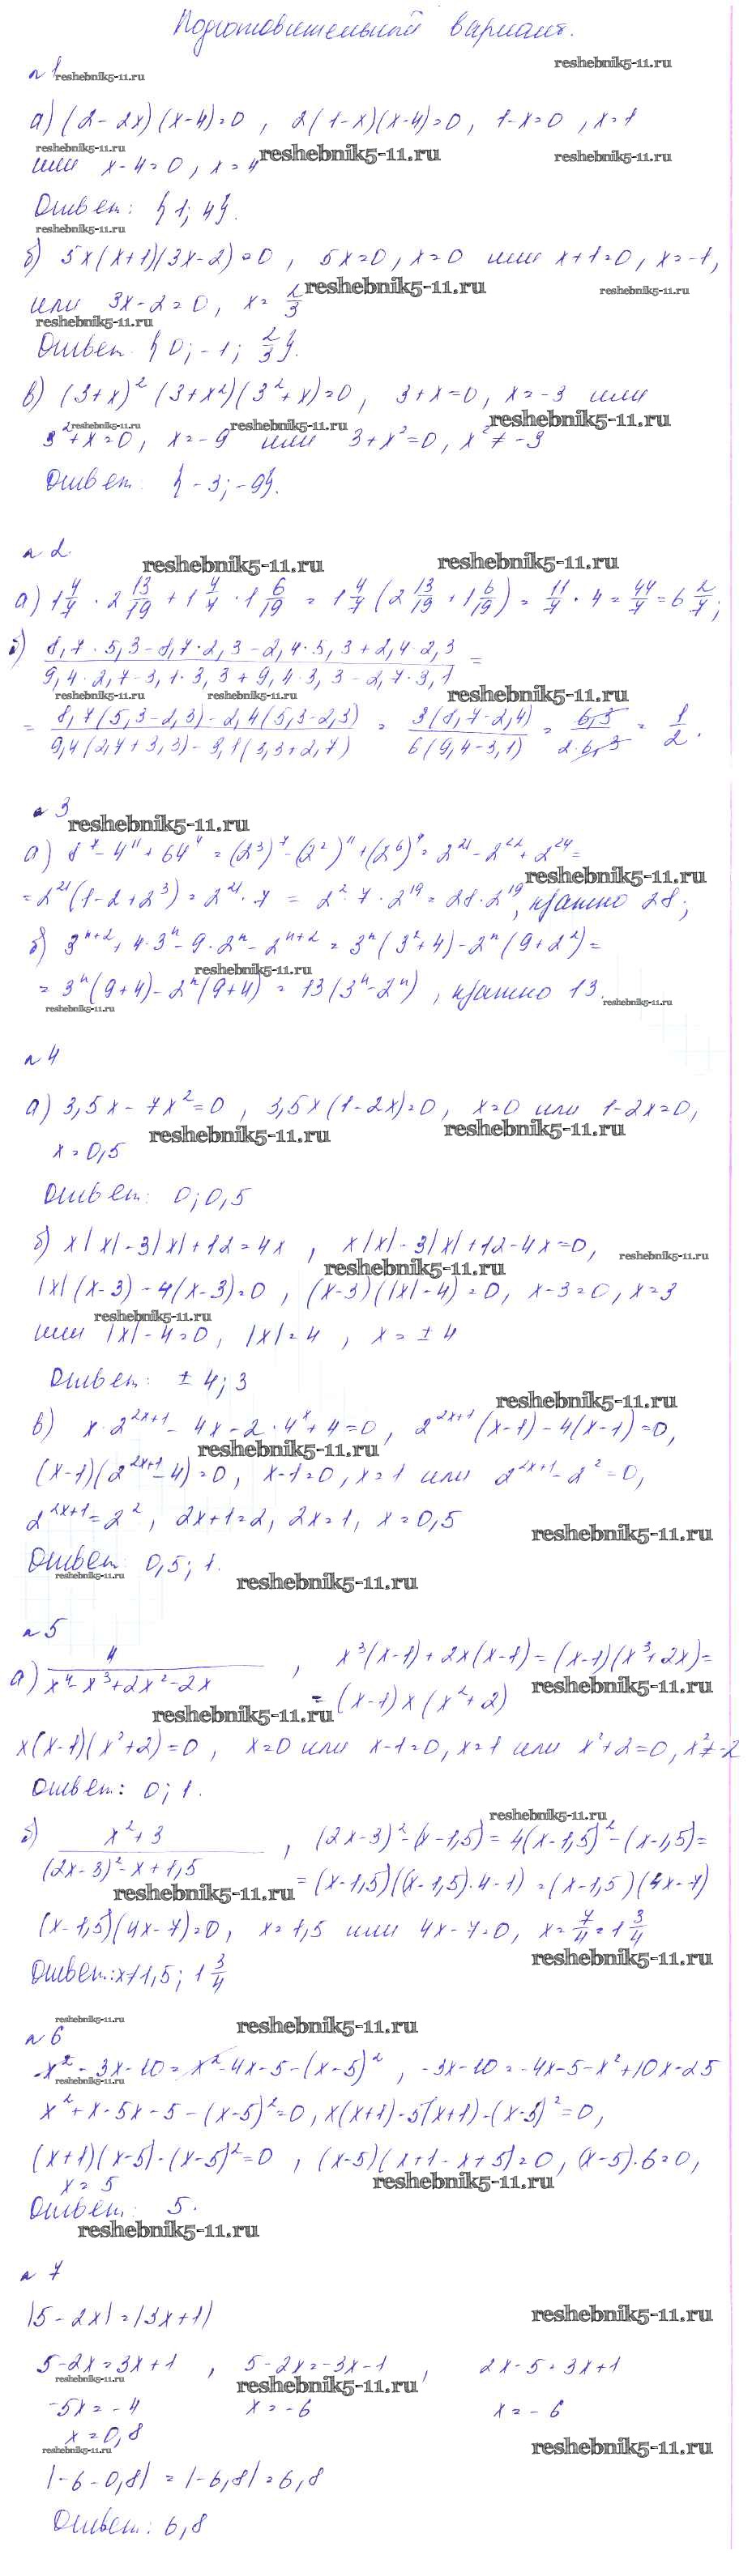 Подготовительный вариант.
reshebnik5-11.ru
№1 reshebnik5-11.ru
а) (2-2x)(x-4)=0, 2(1-x)(x-4)=0, 1-x=0, x=1
reshebnik5-11.ru reshebnik5-11.ru reshebnik5-11.ru
или x-4=0, x=4
Ответ: {1; 4}.
reshebnik5-11.ru
б) 5x(x+1)(3x-2)=0, 5x=0, x=0 или x+1=0, x=-1,
reshebnik5-11.ru reshebnik5-11.ru
или 3x-2=0, x=2/3
reshebnik5-11.ru
Ответ {0; -1; 2/3}.
в) (3+x)²(3+x²)(3²+x)=0, 3+x=0, x=-3 или
reshebnik5-11.ru reshebnik5-11.ru reshebnik5-11.ru
3²+x=0, x=-9 или 3+x²=0, x²≠-3
Ответ: {-3; -9}.
№2
reshebnik5-11.ru reshebnik5-11.ru
а) 1 4/7 · 2 13/19 + 1 4/7 · 1 6/19 = 1 4/7 (2 13/19 + 1 6/19) = 11/7 · 4 = 44/7 = 6 2/7;
б) (8,7·5,3-8,7·2,3-2,4·5,3+2,4·2,3)/(9,4·2,7-3,1·3,3+9,4·3,3-2,7·3,1) =
reshebnik5-11.ru reshebnik5-11.ru reshebnik5-11.ru
= (8,7(5,3-2,3)-2,4(5,3-2,3))/(9,4(2,7+3,3)-3,1(3,3+2,7)) = 3(8,7-2,4)/6(9,4-3,1) = 6,3/2·6,3 = 1/2.
№3
reshebnik5-11.ru
а) 8⁷-4¹¹+64⁴=(2³)⁷-(2²)¹¹+(2⁶)⁴=2²¹-2²²+2²⁴=
reshebnik5-11.ru
=2²¹(1-2+2³)=2²¹·7 = 2²·7·2¹⁹=28·2¹⁹, кратно 28;
б) 3ⁿ⁺²+4·3ⁿ-9·2ⁿ-2ⁿ⁺²=3ⁿ(3²+4)-2ⁿ(9+2²)=
reshebnik5-11.ru
=3ⁿ(9+4)-2ⁿ(9+4)=13(3ⁿ-2ⁿ), кратно 13.
reshebnik5-11.ru reshebnik5-11.ru
№4
а) 3,5x-7x²=0, 3,5x(1-2x)=0, x=0 или 1-2x=0,
reshebnik5-11.ru reshebnik5-11.ru
x=0,5
Ответ: 0; 0,5
б) x|x|-3|x|+12=4x, x|x|-3|x|+12-4x=0,
reshebnik5-11.ru reshebnik5-11.ru
|x|(x-3)-4(x-3)=0, (x-3)(|x|-4)=0, x-3=0, x=3
reshebnik5-11.ru
или |x|-4=0, |x|=4, x=±4
Ответ: ±4; 3
reshebnik5-11.ru
в) x·2²ˣ⁺¹-4x-2·4ˣ+4=0, 2²ˣ⁺¹(x-1)-4(x-1)=0,
reshebnik5-11.ru
(x-1)(2²ˣ⁺¹-4)=0, x-1=0, x=1 или 2²ˣ⁺¹-2²=0,
2²ˣ⁺¹=2², 2x+1=2, 2x=1, x=0,5
reshebnik5-11.ru
Ответ 0,5; 1.
reshebnik5-11.ru reshebnik5-11.ru
№5
а) 4/(x⁴-x³+2x²-2x), x³(x-1)+2x(x-1)=(x-1)(x³+2x)=
reshebnik5-11.ru
=(x-1)x(x²+2)
reshebnik5-11.ru
x(x-1)(x²+2)=0, x=0 или x-1=0, x=1 или x²+2=0, x²≠-2
Ответ: 0; 1.
reshebnik5-11.ru
б) (x²+3)/((2x-3)²-x+1,5), (2x-3)²-(x-1,5)=4(x-1,5)²-(x-1,5)=
reshebnik5-11.ru
=(x-1,5)((x-1,5)·4-1)=(x-1,5)(4x-7)
(x-1,5)(4x-7)=0, x=1,5 или 4x-7=0, x=7/4=1 3/4
reshebnik5-11.ru
Ответ: x≠1,5; 1 3/4
reshebnik5-11.ru reshebnik5-11.ru
№6
-x²-3x-10=x²-4x-5-(x-5)², -3x-10=-4x-5-x²+10x-25
reshebnik5-11.ru
x²+x-5x-5-(x-5)²=0, x(x+1)-5(x+1)-(x-5)²=0,
(x+1)(x-5)-(x-5)²=0, (x-5)(x+1-x+5)=0, (x-5)·6=0,
x=5 reshebnik5-11.ru
Ответ: 5.
reshebnik5-11.ru
№7
|5-2x|=|3x+1|
reshebnik5-11.ru
5-2x=3x+1, 5-2x=-3x-1, 2x-5=3x+1
reshebnik5-11.ru reshebnik5-11.ru
-5x=-4 x=-6 x=-6
x=0,8
reshebnik5-11.ru reshebnik5-11.ru
|-6-0,8|=|-6,8|=6,8
Ответ: 6,8